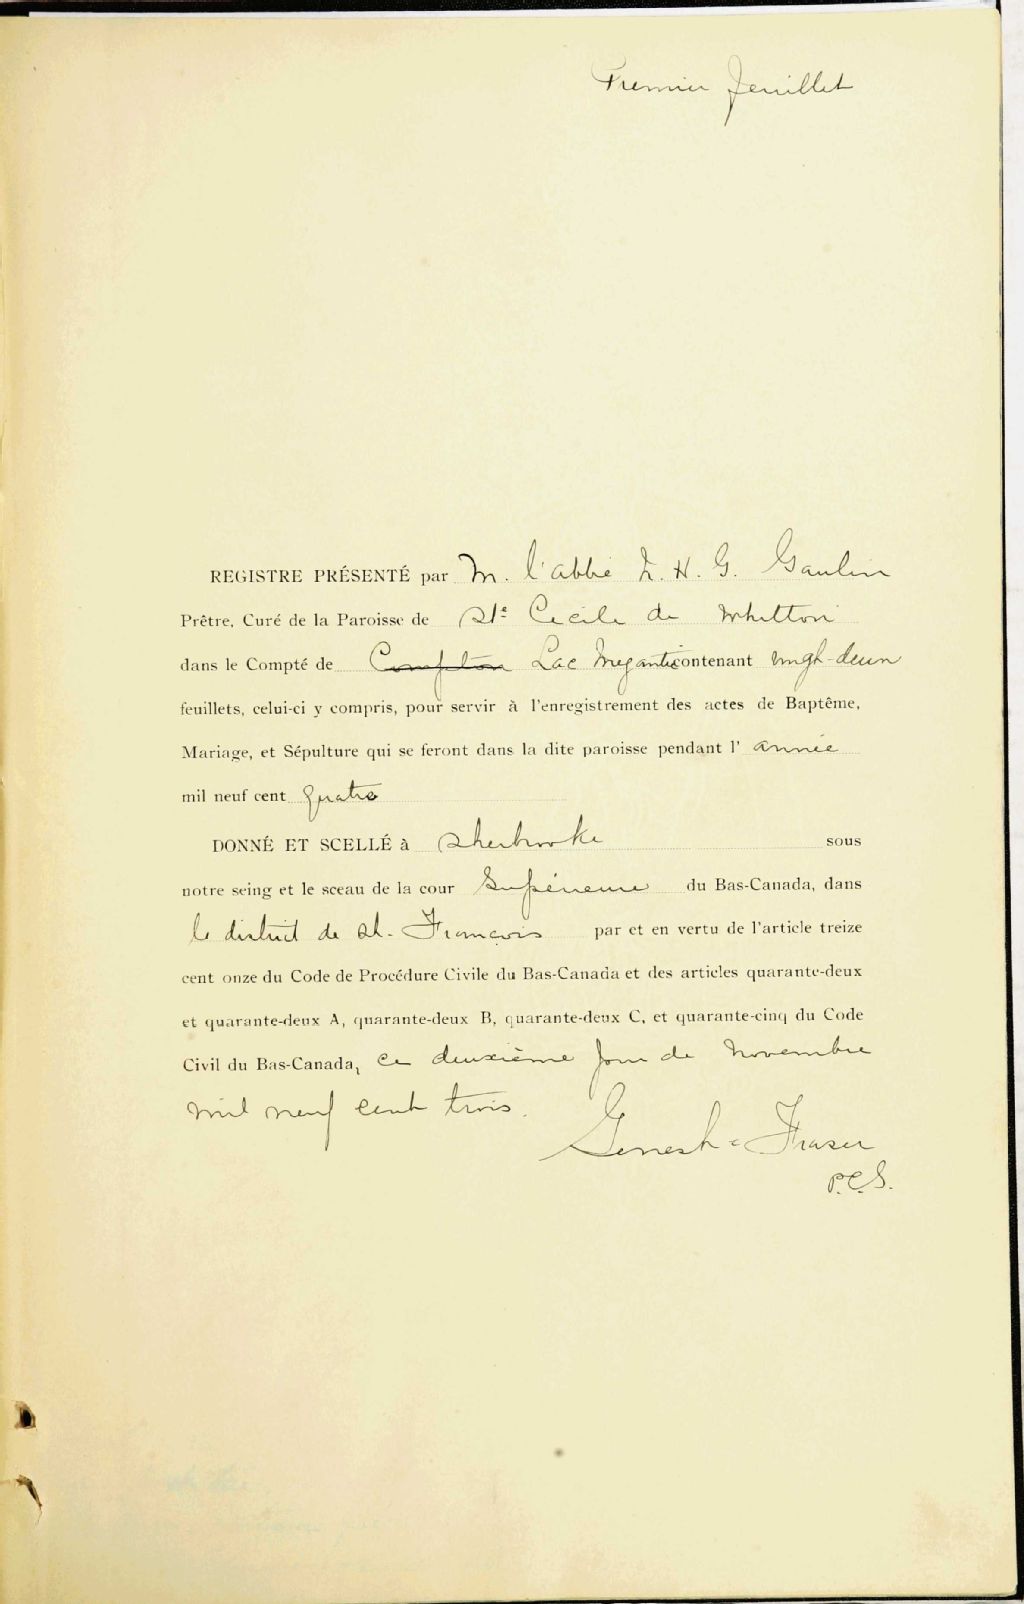 Premier feuillet
REGISTRE PRÉSENTÉ par M. l'abbé Z. H. G. Gaulin
Prêtre, Curé de la Paroisse de Ste Cecile de Whitton
dans le Compté de Compton Lac Megantic contenant vingt-deux
feuillets, celui-ci y compris, pour servir à l'enregistrement des actes de Baptême,
Mariage, et Sépulture qui se feront dans la dite paroisse pendant l' année
mil neuf cent quatre
DONNÉ ET SCELLÉ à Sherbrooke sous
notre seing et le sceau de la cour Supérieure du Bas-Canada, dans
le district de St. François par et en vertu de l'article treize
cent onze du Code de Procédure Civile du Bas-Canada et des articles quarante-deux
et quarante-deux A, quarante-deux B, quarante-deux C, et quarante-cinq du Code
Civil du Bas-Canada, ce deuxième jour de Novembre
mil neuf cent trois.
Genest & Fraser
P.C.S.